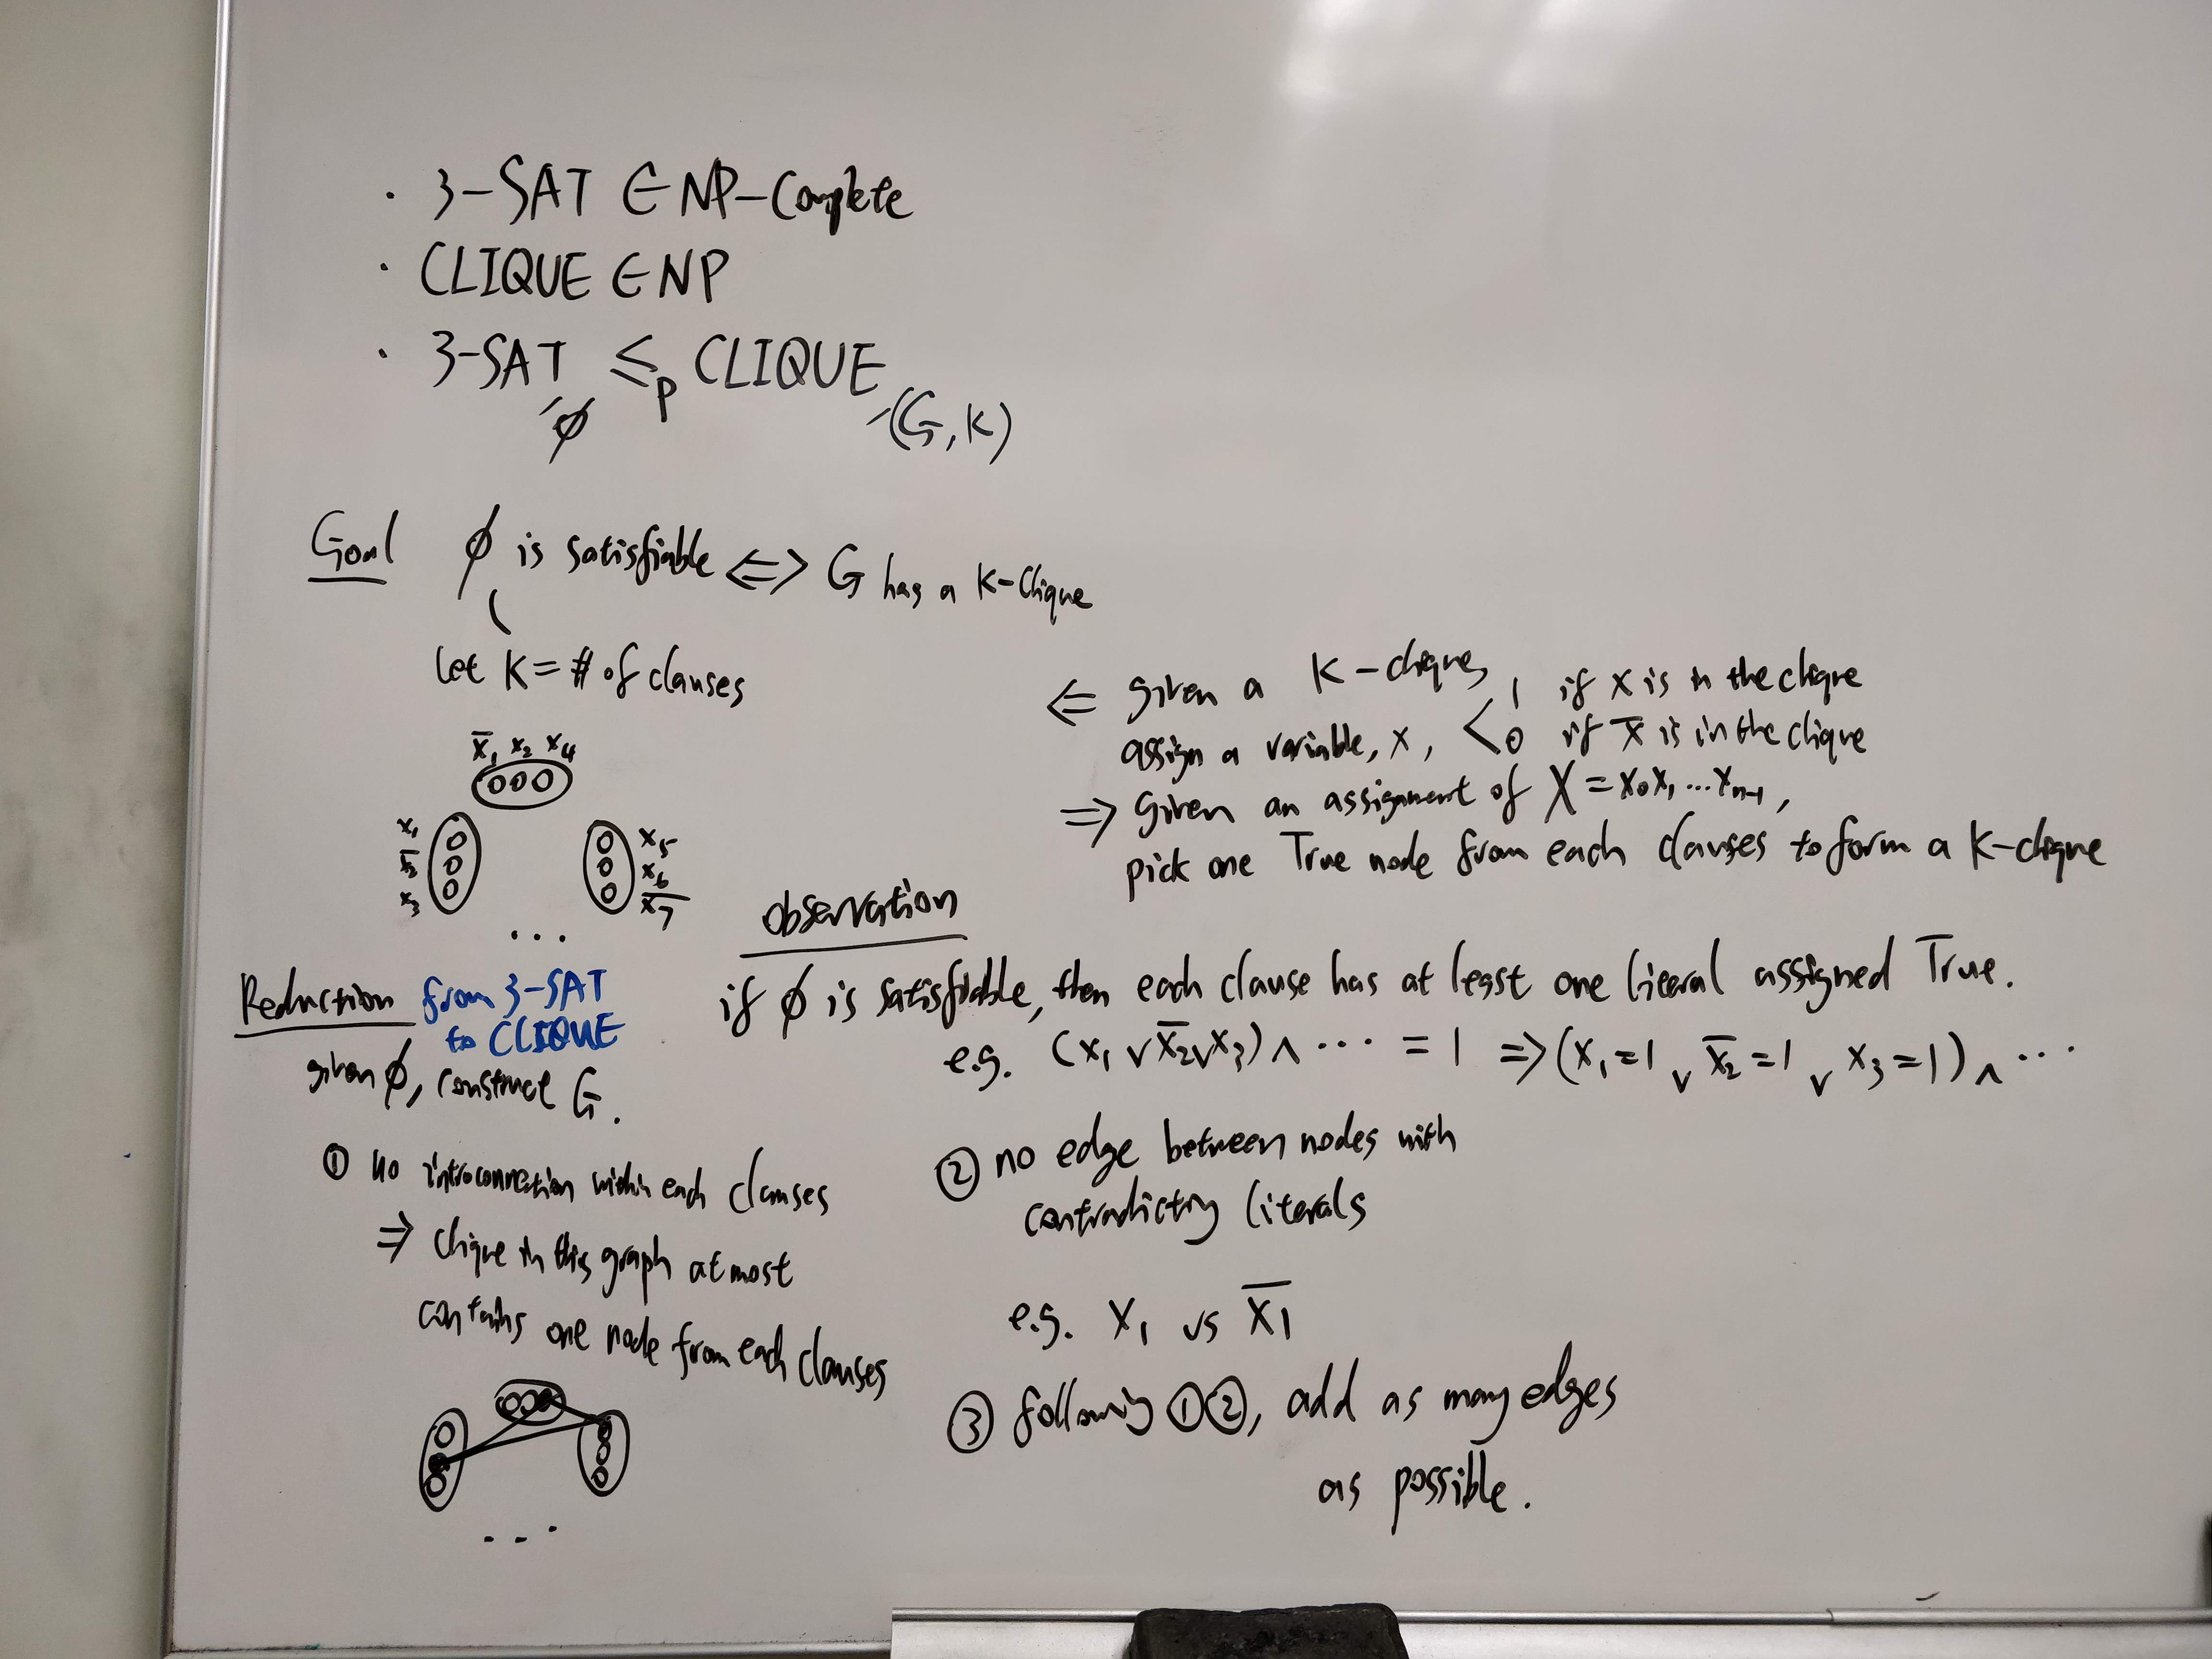 · 3-SAT ∈ NP-Complete
· CLIQUE ∈ NP
· 3-SAT ≤p CLIQUE
ϕ
(G, K)
Goal ϕ is satisfiable <=> G has a K-Clique
let K = # of clauses
x̅₁ x₂ x₄
x₁
x₃
x₅
x₆
x̅₇
...
<= given a K-clique,
assign a variable, x, < 1 if x is in the clique
0 if x̅ is in the clique
=> Given an assignment of X = x₀x₁...xₙ₋₁,
pick one True node from each clauses to form a K-clique
Observation
if ϕ is satisfiable, then each clause has at least one literal assigned True.
e.g. (x₁ ∨ x̅₂ ∨ x₃) ∧ ... = 1 => (x₁=1 ∨ x̅₂=1 ∨ x₃=1) ∧ ...
Reduction from 3-SAT
to CLIQUE
given ϕ, construct G.
① no introconnection within each clauses
=> clique in this graph at most
contains one node from each clauses
...
② no edge between nodes with
contradictry literals
e.g. x₁ vs x̅₁
③ following ①②, add as many edges
as possible.